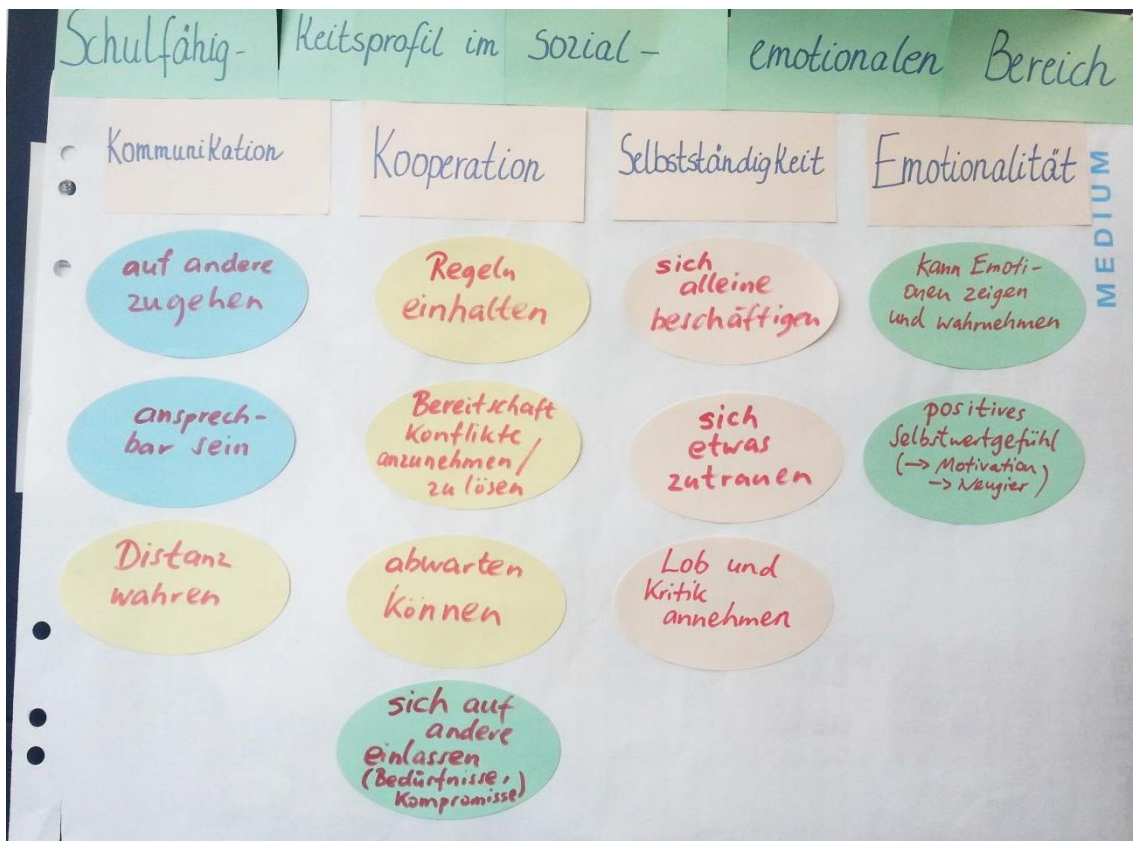 Schulfähig- keitsprofil im sozial- emotionalen Bereich
Kommunikation
auf andere
zugehen
ansprech-
bar sein
Distanz
wahren
Kooperation
Regeln
einhalten
Bereitschaft
Konflikte
anzunehmen/
zu lösen
abwarten
können
sich auf
andere
einlassen
(Bedürfnisse,
Kompromisse)
Selbstständigkeit
sich
alleine
beschäftigen
sich
etwas
zutrauen
Lob und
Kritik
annehmen
Emotionalität
kann Emoti-
onen zeigen
und wahrnehmen
positives
Selbstwertgefühl
(→ Motivation
→ Neugier)
MEDIUM